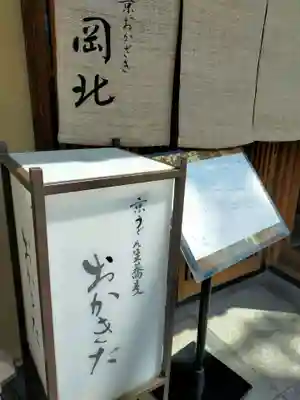 京おかざき
岡北
京うどん生蕎麦
おかきた
おかきた